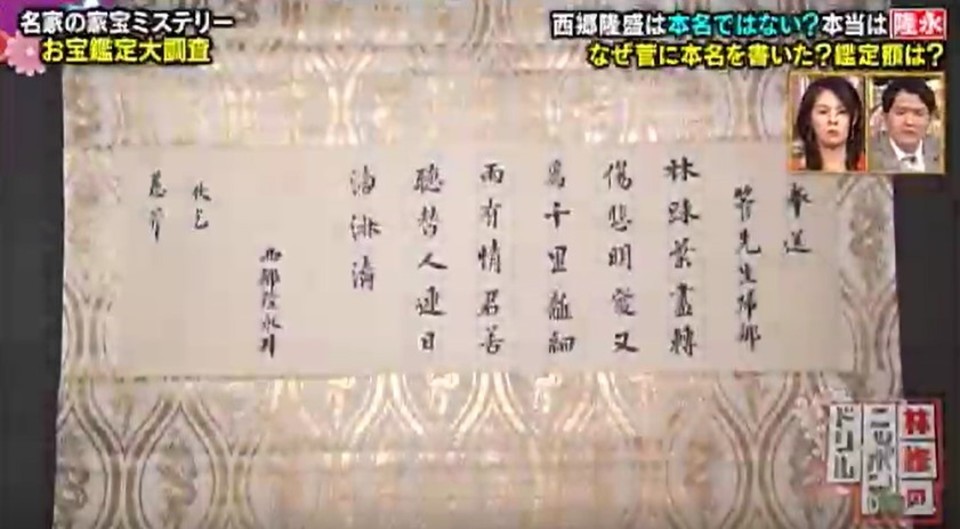 名家の家宝ミステリー
お宝鑑定大調査
西郷隆盛は本名ではない?本当は隆永
なぜ菅に本名を書いた?鑑定額は?
奉送
菅先生歸郷
林踈葉盡轉
傷悲明發又
爲千里離細
雨有情君善
聽替人連日
滴淋漓
西郷隆永拜
伏乞
林修の
ニッポン
ドリル